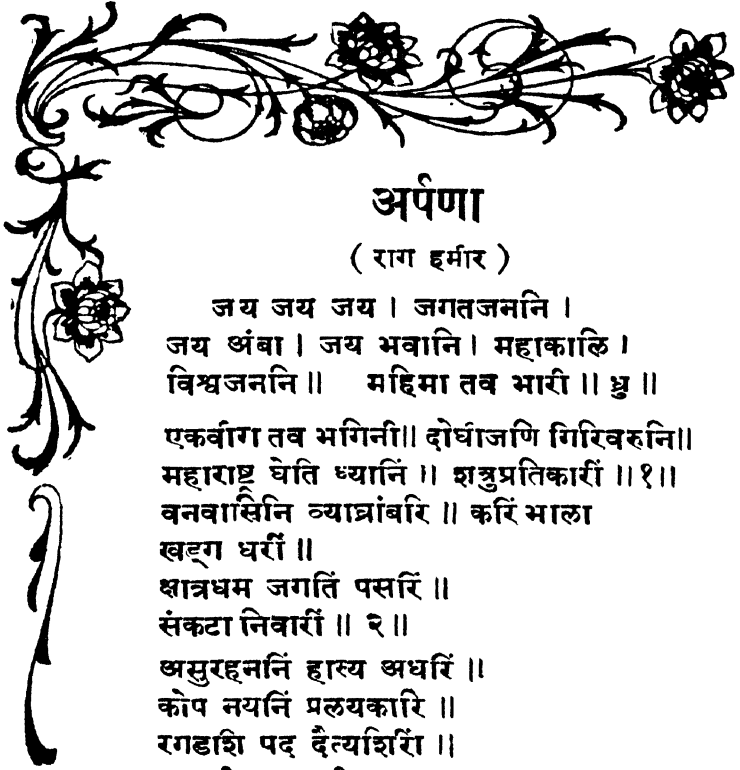 अर्पणा
( राग हमीर )
जय जय जय । जगतजननि ।
जय अंबा । जय भवानि । महाकालि ।
विश्वजननि ॥ महिमा तव भारी ॥ ध्रु ॥
एकवीरा तव भगिनी॥ दोघीजणि गिरिवरुनि॥
महाराष्ट्र घेति ध्यानिं ॥ शत्रुप्रतिकारीं ॥१॥
वनवासिनि व्याघ्रांबरि ॥ करिं भाला
खड्ग धरीं ॥
क्षात्रधम जगतिं पसरिं ॥
संकटा निवारीं ॥ २॥
असुरहननिं हास्य अधरिं ॥
कोप नयनिं प्रलयकारि ॥
रगडाशि पद दैत्यशिरिं ॥